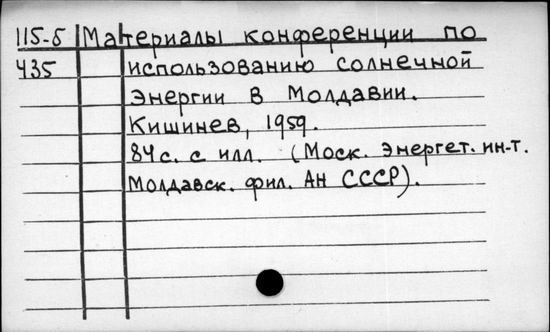 115-8 Материалы конференции по
435 использованию солнечной
энергии в Молдавии.
Кишинев, 1959.
84 с. с илл. (Моск. энергет. ин-т.
Молдавск. фил. АН СССР).